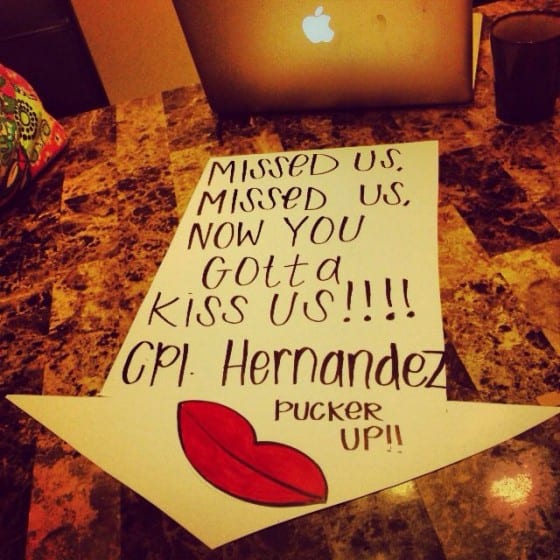 MISSED US,
MISSED US,
NOW YOU
GOTTA
KISS US!!!!
CPl. Hernandez
PUCKER
UP!!